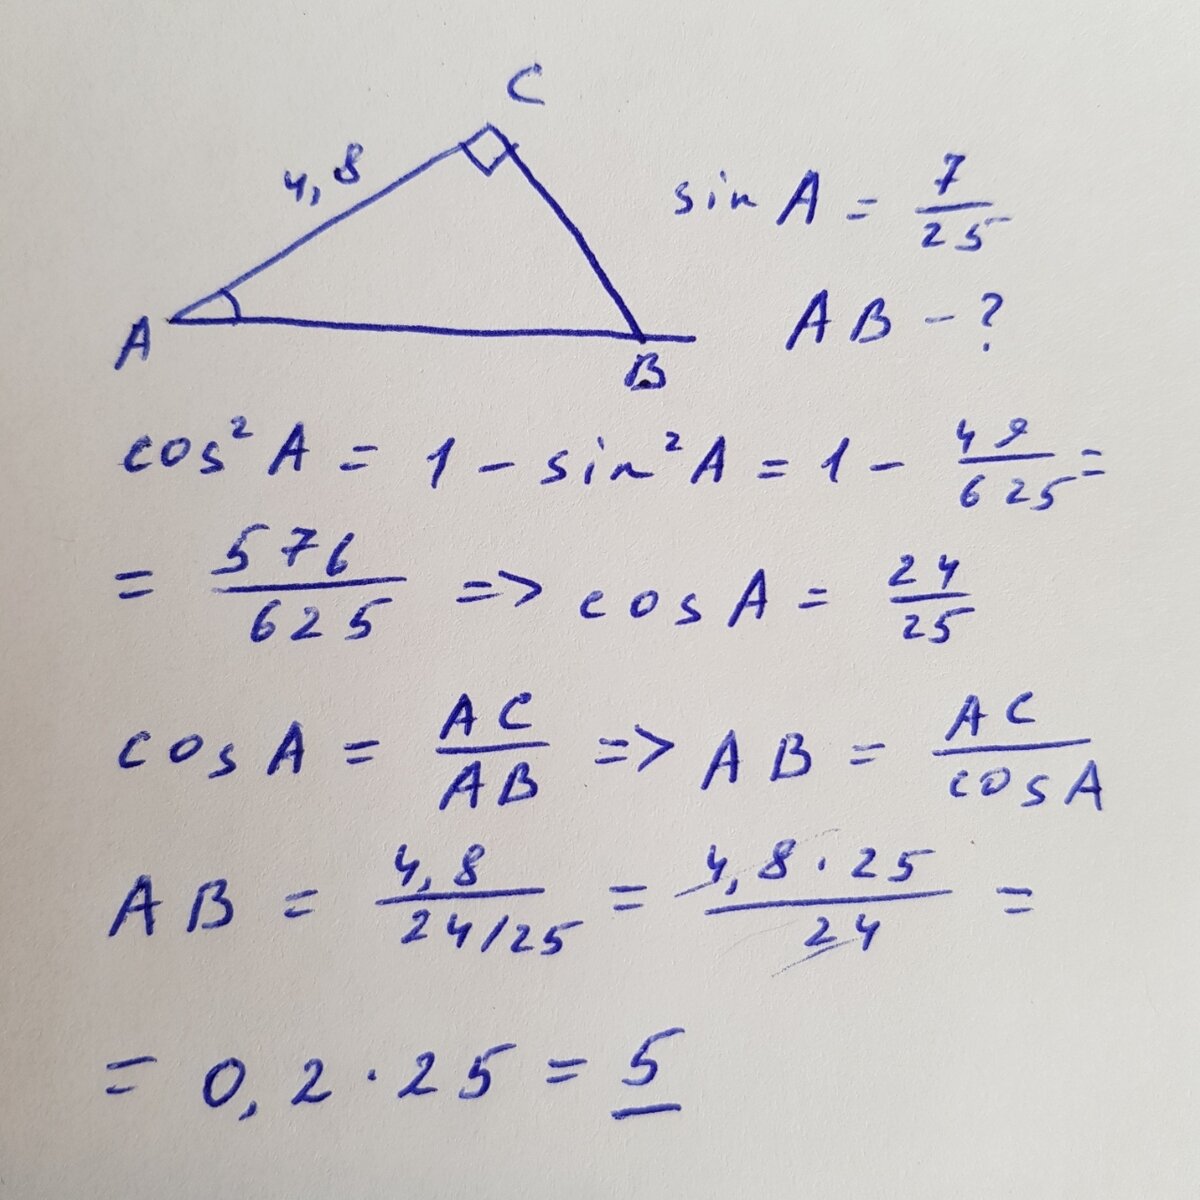 C
4,8
sin A = 7/25
A
B
AB - ?
cos² A = 1 - sin² A = 1 - 49/625 =
= 576/625 => cos A = 24/25
cos A = AC/AB => AB = AC/cos A
AB = 4,8/(24/25) = 4,8 · 25/24 =
= 0,2 · 25 = 5